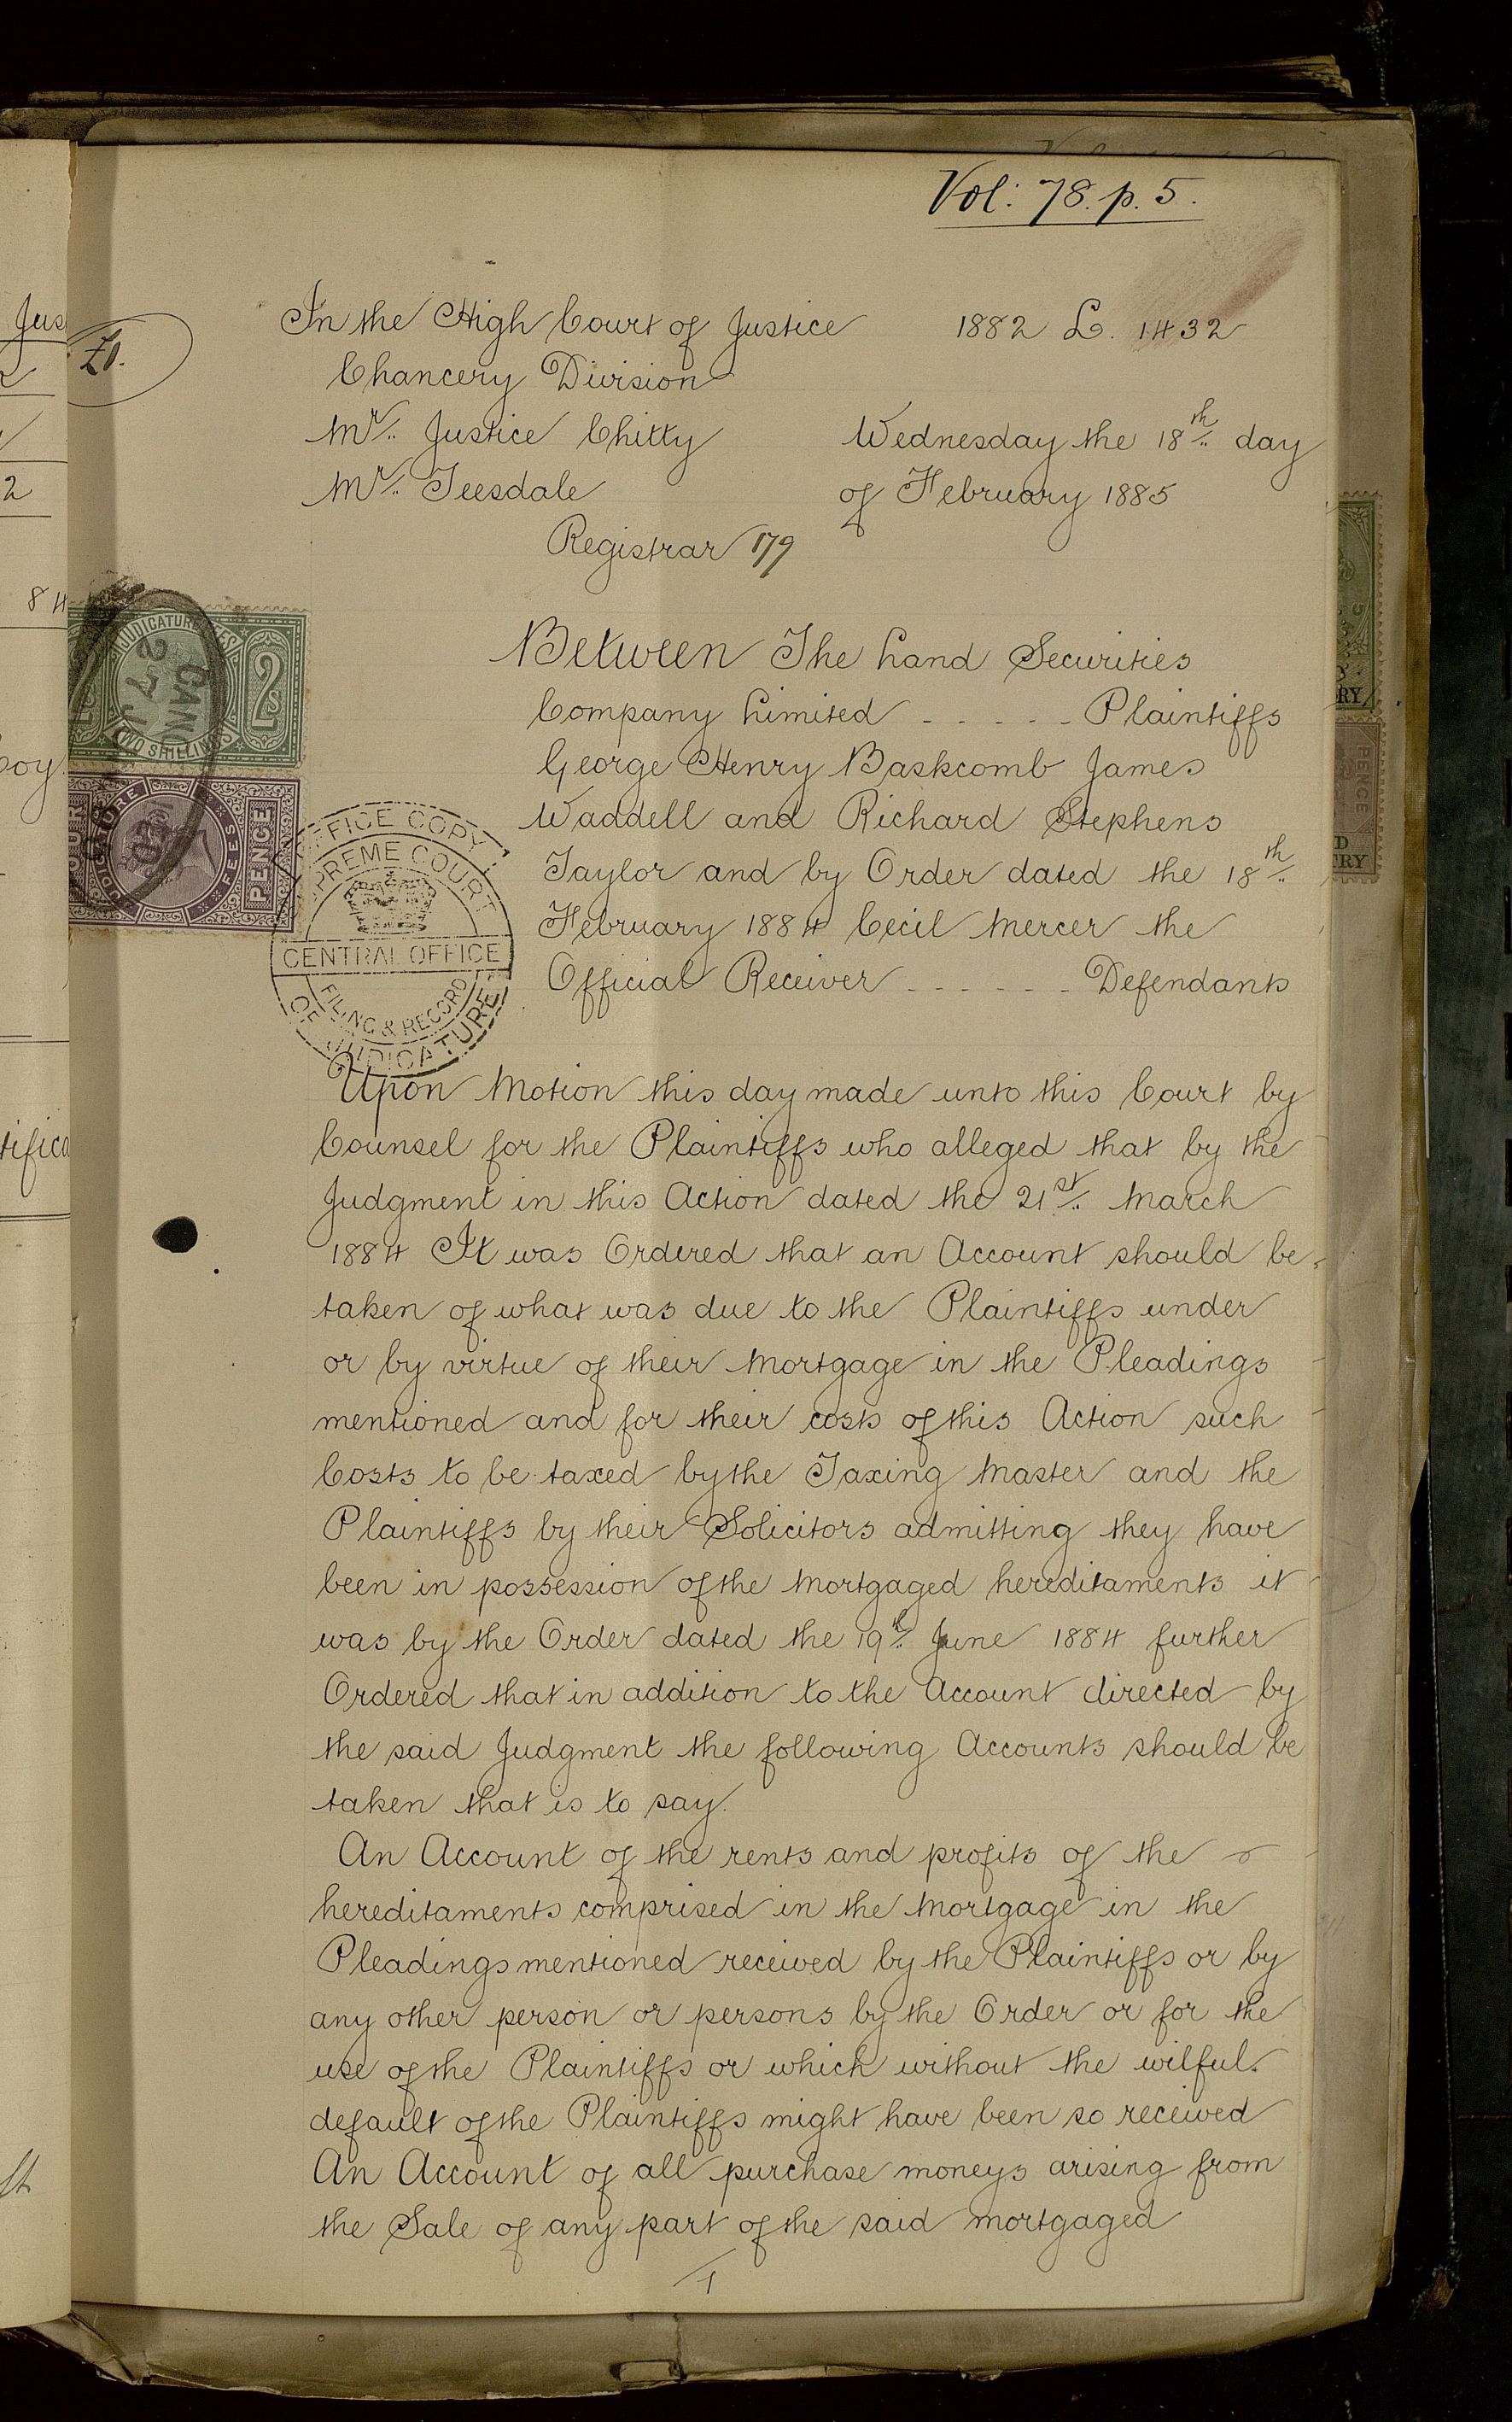 Vol: 78. p. 5.
In the High Court of Justice 1882 L. 1432
Chancery Division
Mr. Justice Chitty Wednesday the 18th day
Mr. Teesdale of February 1885
Registrar 179
Between The Land Securities
Company Limited - - - - - Plaintiffs
George Henry Baskcomb James
Waddell and Richard Stephens
Taylor and by Order dated the 18th
February 1884 Cecil Mercer the
Official Receiver - - - - - - Defendants
JUDICATURE FEES
TWO SHILLINGS
JUDICATURE FEES
PENCE
OFFICE COPY
SUPREME COURT
CENTRAL OFFICE
FILING & RECORD
OF JUDICATURE
Upon Motion this day made unto this Court by
Counsel for the Plaintiffs who alleged that by the
Judgment in this Action dated the 21st March
1884 It was Ordered that an Account should be
taken of what was due to the Plaintiffs under
or by virtue of their Mortgage in the Pleadings
mentioned and for their costs of this Action such
Costs to be taxed by the Taxing Master and the
Plaintiffs by their Solicitors admitting they have
been in possession of the Mortgaged hereditaments it
was by the Order dated the 19th June 1884 further
Ordered that in addition to the Account directed by
the said Judgment the following Accounts should be
taken that is to say.
An Account of the rents and profits of the
hereditaments comprised in the Mortgage in the
Pleadings mentioned received by the Plaintiffs or by
any other person or persons by the Order or for the
use of the Plaintiffs or which without the wilful
default of the Plaintiffs might have been so received
An Account of all purchase moneys arising from
the Sale of any part of the said mortgaged
1